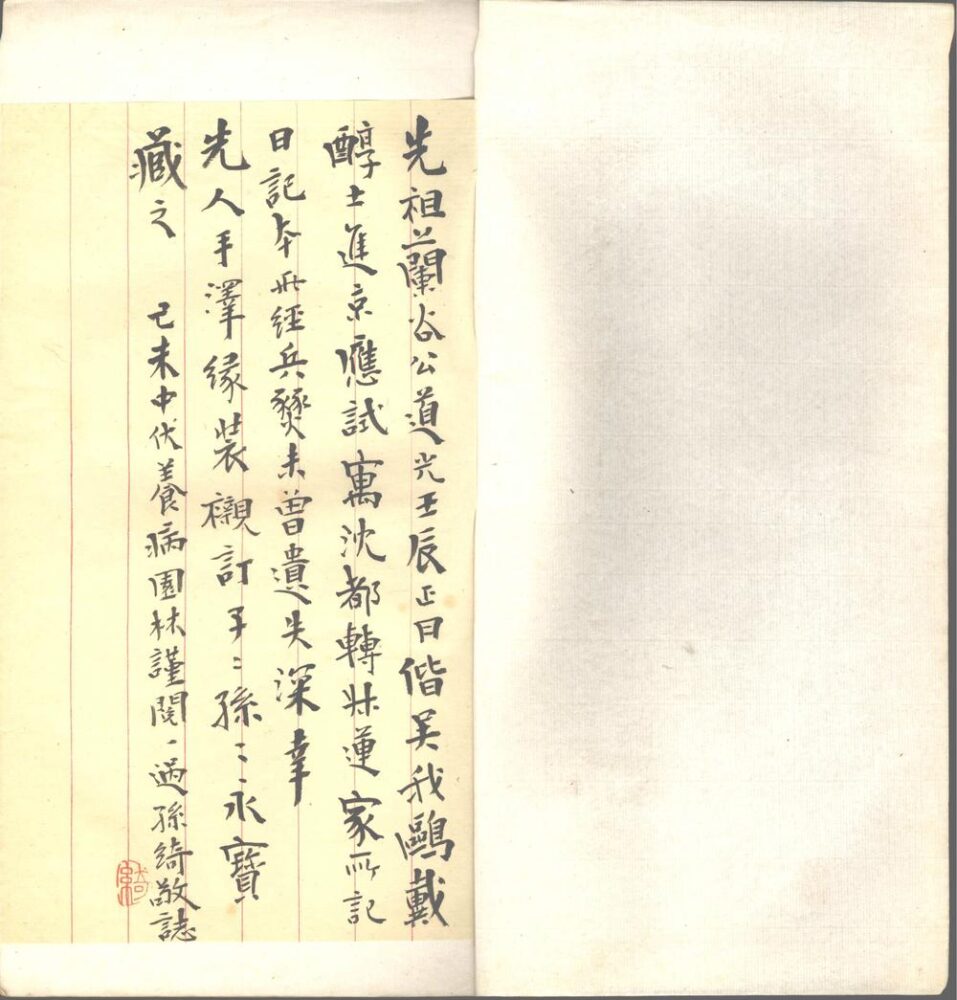 先祖蘭谷公道光壬辰正日偕吴我鷗戴
醇士進京應試寓沈都轉蓮家所記
日記本経兵燹未曽遺失深幸
先人手澤缘装襯訂子〻孫〻永寶
藏之　己未中伏養病園林謹閱一過孫綺敬誌
綺